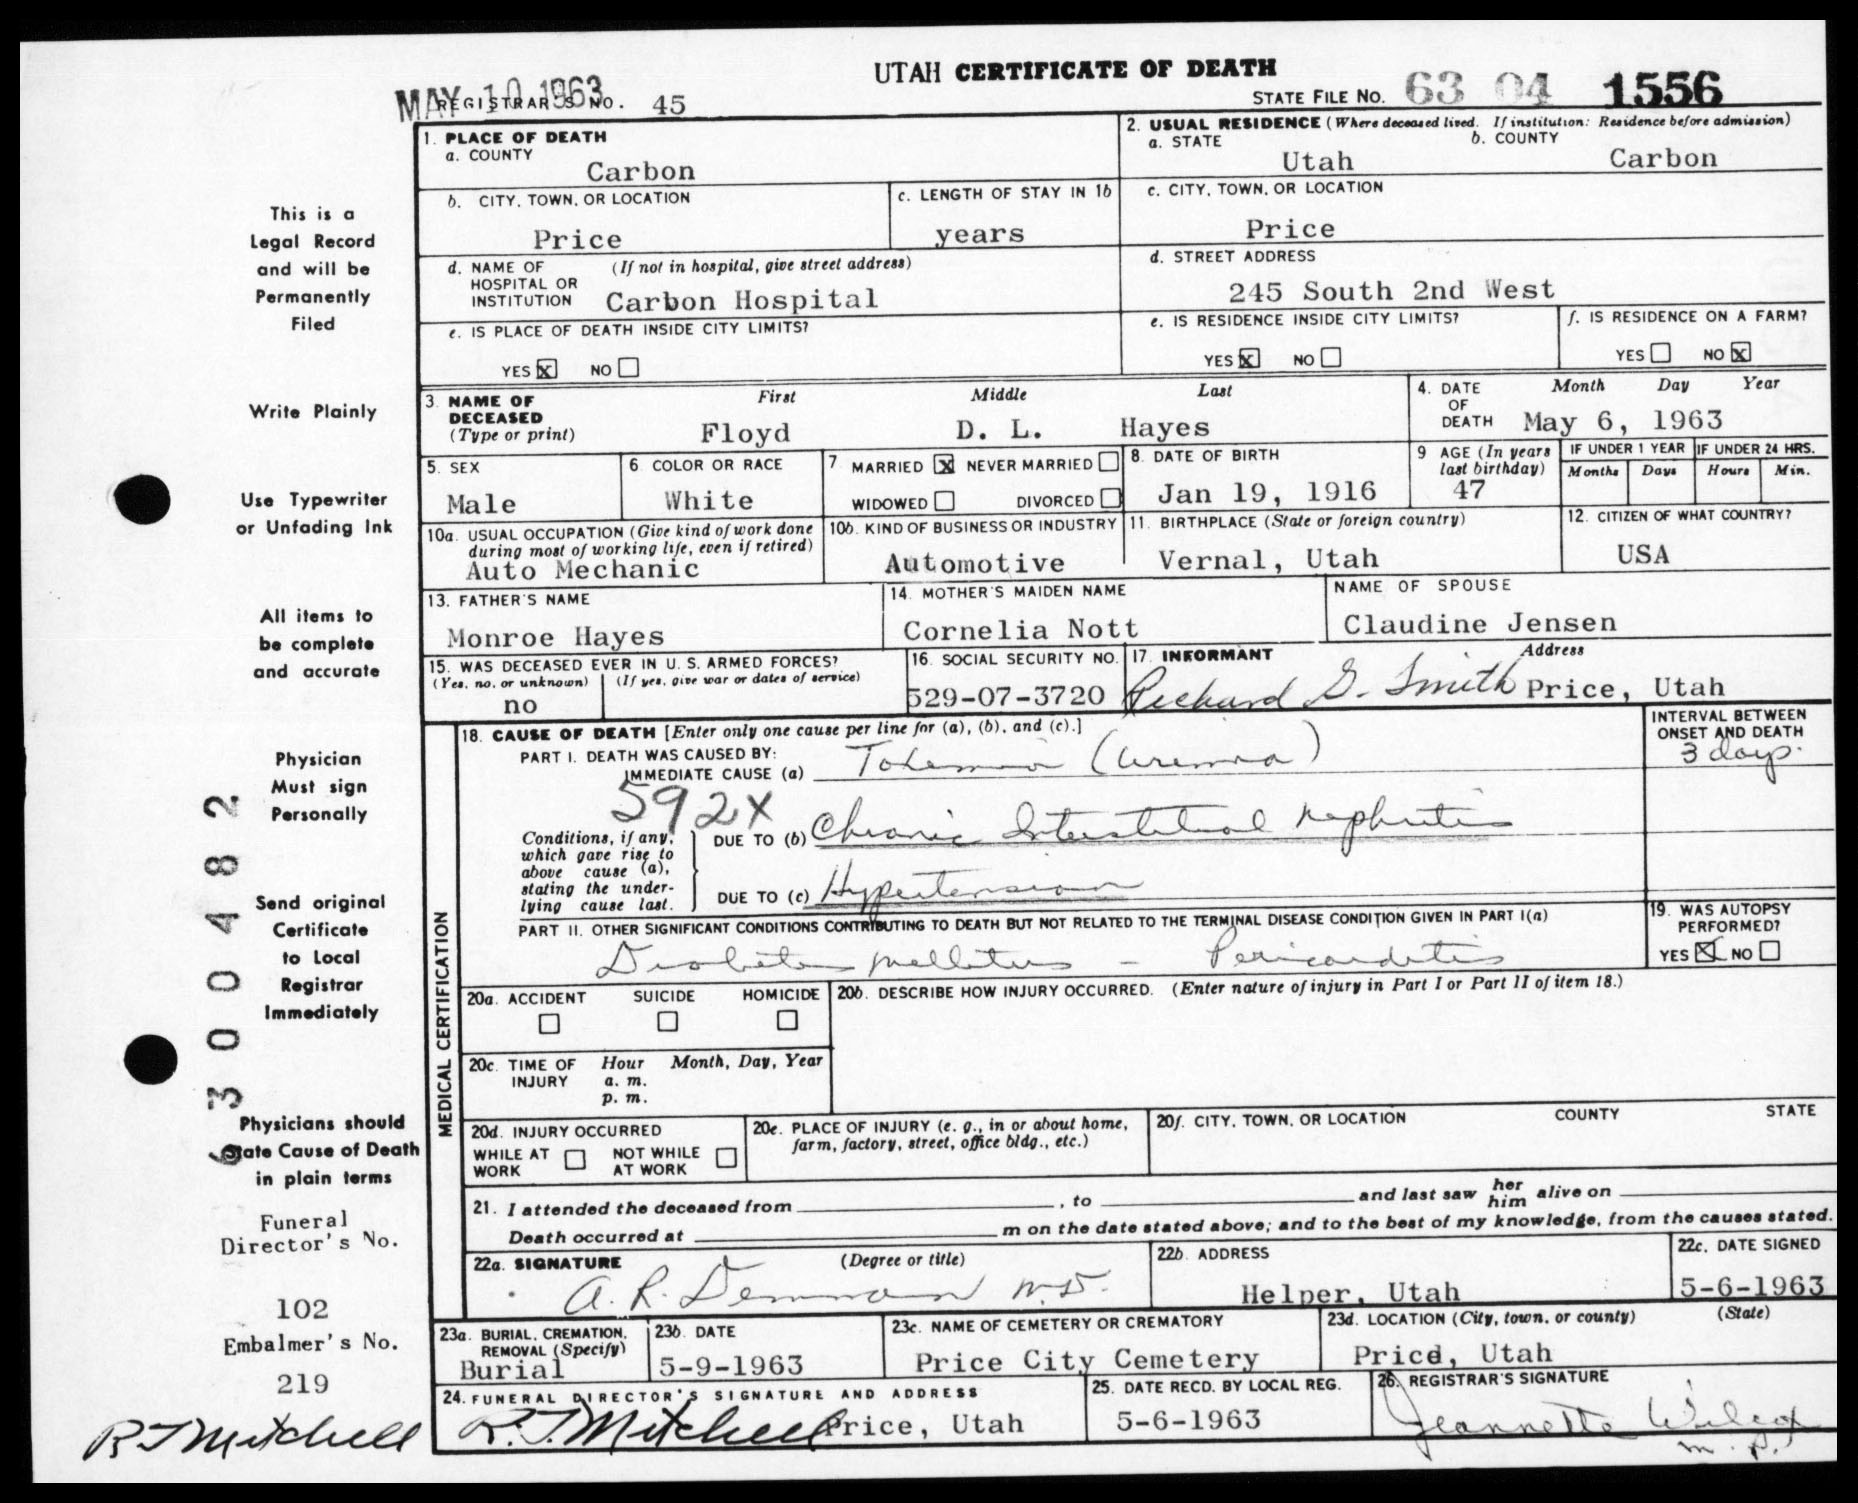 UTAH CERTIFICATE OF DEATH
MAY 10 1963
REGISTRAR'S NO. 45
STATE FILE NO. 63 04 1556
1. PLACE OF DEATH
a. COUNTY
Carbon
2. USUAL RESIDENCE (Where deceased lived. If institution: Residence before admission)
a. STATE
Utah
b. COUNTY
Carbon
b. CITY, TOWN, OR LOCATION
Price
c. LENGTH OF STAY IN 1b
years
c. CITY, TOWN, OR LOCATION
Price
d. NAME OF HOSPITAL OR INSTITUTION
(If not in hospital, give street address)
Carbon Hospital
d. STREET ADDRESS
245 South 2nd West
e. IS PLACE OF DEATH INSIDE CITY LIMITS?
YES X NO
e. IS RESIDENCE INSIDE CITY LIMITS?
YES X NO
f. IS RESIDENCE ON A FARM?
YES NO X
3. NAME OF DECEASED (Type or print)
First Middle Last
Floyd D. L. Hayes
4. DATE OF DEATH
Month Day Year
May 6, 1963
5. SEX
Male
6 COLOR OR RACE
White
7. MARRIED X NEVER MARRIED
WIDOWED DIVORCED
8. DATE OF BIRTH
Jan 19, 1916
9 AGE (In years last birthday)
47
IF UNDER 1 YEAR
Months Days
IF UNDER 24 HRS.
Hours Min.
10a. USUAL OCCUPATION (Give kind of work done during most of working life, even if retired)
Auto Mechanic
10b. KIND OF BUSINESS OR INDUSTRY
Automotive
11. BIRTHPLACE (State or foreign country)
Vernal, Utah
12. CITIZEN OF WHAT COUNTRY?
USA
13. FATHER'S NAME
Monroe Hayes
14. MOTHER'S MAIDEN NAME
Cornelia Nott
NAME OF SPOUSE
Claudine Jensen
15. WAS DECEASED EVER IN U. S. ARMED FORCES?
(Yes, no, or unknown) (If yes, give war or dates of service)
no
16. SOCIAL SECURITY NO.
529-07-3720
17. INFORMANT Address
Richard G. Smith Price, Utah
18. CAUSE OF DEATH [Enter only one cause per line for (a), (b), and (c).]
INTERVAL BETWEEN ONSET AND DEATH
PART I. DEATH WAS CAUSED BY:
IMMEDIATE CAUSE (a) Toxemia (Uremia)
3 days
592X
Conditions, if any, which gave rise to above cause (a), stating the underlying cause last.
DUE TO (b) Chronic Interstitial Nephritis
DUE TO (c) Hypertension
PART II. OTHER SIGNIFICANT CONDITIONS CONTRIBUTING TO DEATH BUT NOT RELATED TO THE TERMINAL DISEASE CONDITION GIVEN IN PART I(a)
Diabetes Mellitus - Pericarditis
19. WAS AUTOPSY PERFORMED?
YES X NO
MEDICAL CERTIFICATION
20a. ACCIDENT SUICIDE HOMICIDE
20b. DESCRIBE HOW INJURY OCCURRED. (Enter nature of injury in Part I or Part II of item 18.)
20c. TIME OF INJURY
Hour Month, Day, Year
a. m.
p. m.
20d. INJURY OCCURRED
WHILE AT WORK NOT WHILE AT WORK
20e. PLACE OF INJURY (e. g., in or about home, farm, factory, street, office bldg., etc.)
20f. CITY, TOWN, OR LOCATION COUNTY STATE
21. I attended the deceased from , to and last saw her him alive on
Death occurred at m on the date stated above; and to the best of my knowledge, from the causes stated.
22a. SIGNATURE (Degree or title)
A. R. Demman M.D.
22b. ADDRESS
Helper, Utah
22c. DATE SIGNED
5-6-1963
23a. BURIAL, CREMATION, REMOVAL (Specify)
Burial
23b. DATE
5-9-1963
23c. NAME OF CEMETERY OR CREMATORY
Price City Cemetery
23d. LOCATION (City, town, or county) (State)
Price, Utah
24. FUNERAL DIRECTOR'S SIGNATURE AND ADDRESS
R. J. Mitchell Price, Utah
25. DATE RECD. BY LOCAL REG.
5-6-1963
26. REGISTRAR'S SIGNATURE
Jeannette Wilcox
This is a
Legal Record
and will be
Permanently
Filed
Write Plainly
Use Typewriter
or Unfading Ink
All items to
be complete
and accurate
Physician
Must sign
Personally
Send original
Certificate
to Local
Registrar
Immediately
Physicians should
State Cause of Death
in plain terms
6300482
Funeral
Director's No.
102
Embalmer's No.
219
R J Mitchell